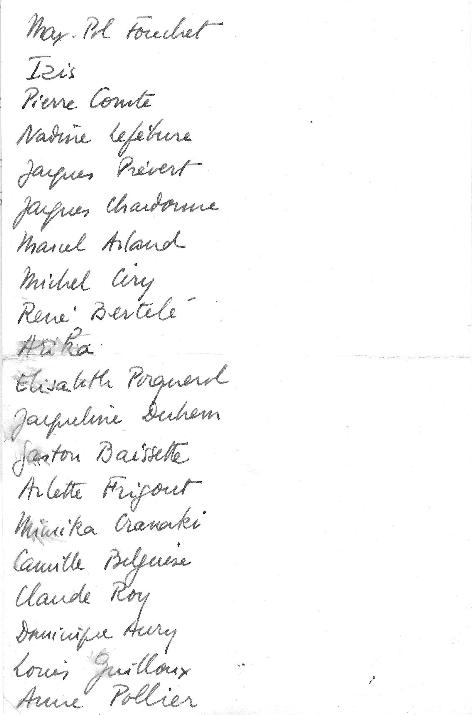 Max-Pol Fouchet
Izis
Pierre Comte
Nadine Lefébure
Jacques Prévert
Jacques Chardonne
Marcel Arland
Michel Ciry
René Bertelé
Arika
Elisabeth Porquerol
Jacqueline Duhem
Gaston Baissette
Arlette Frigout
Mimika Cranaki
Camille Belguise
Claude Roy
Dominique Aury
Louis Guilloux
Anne Pollier